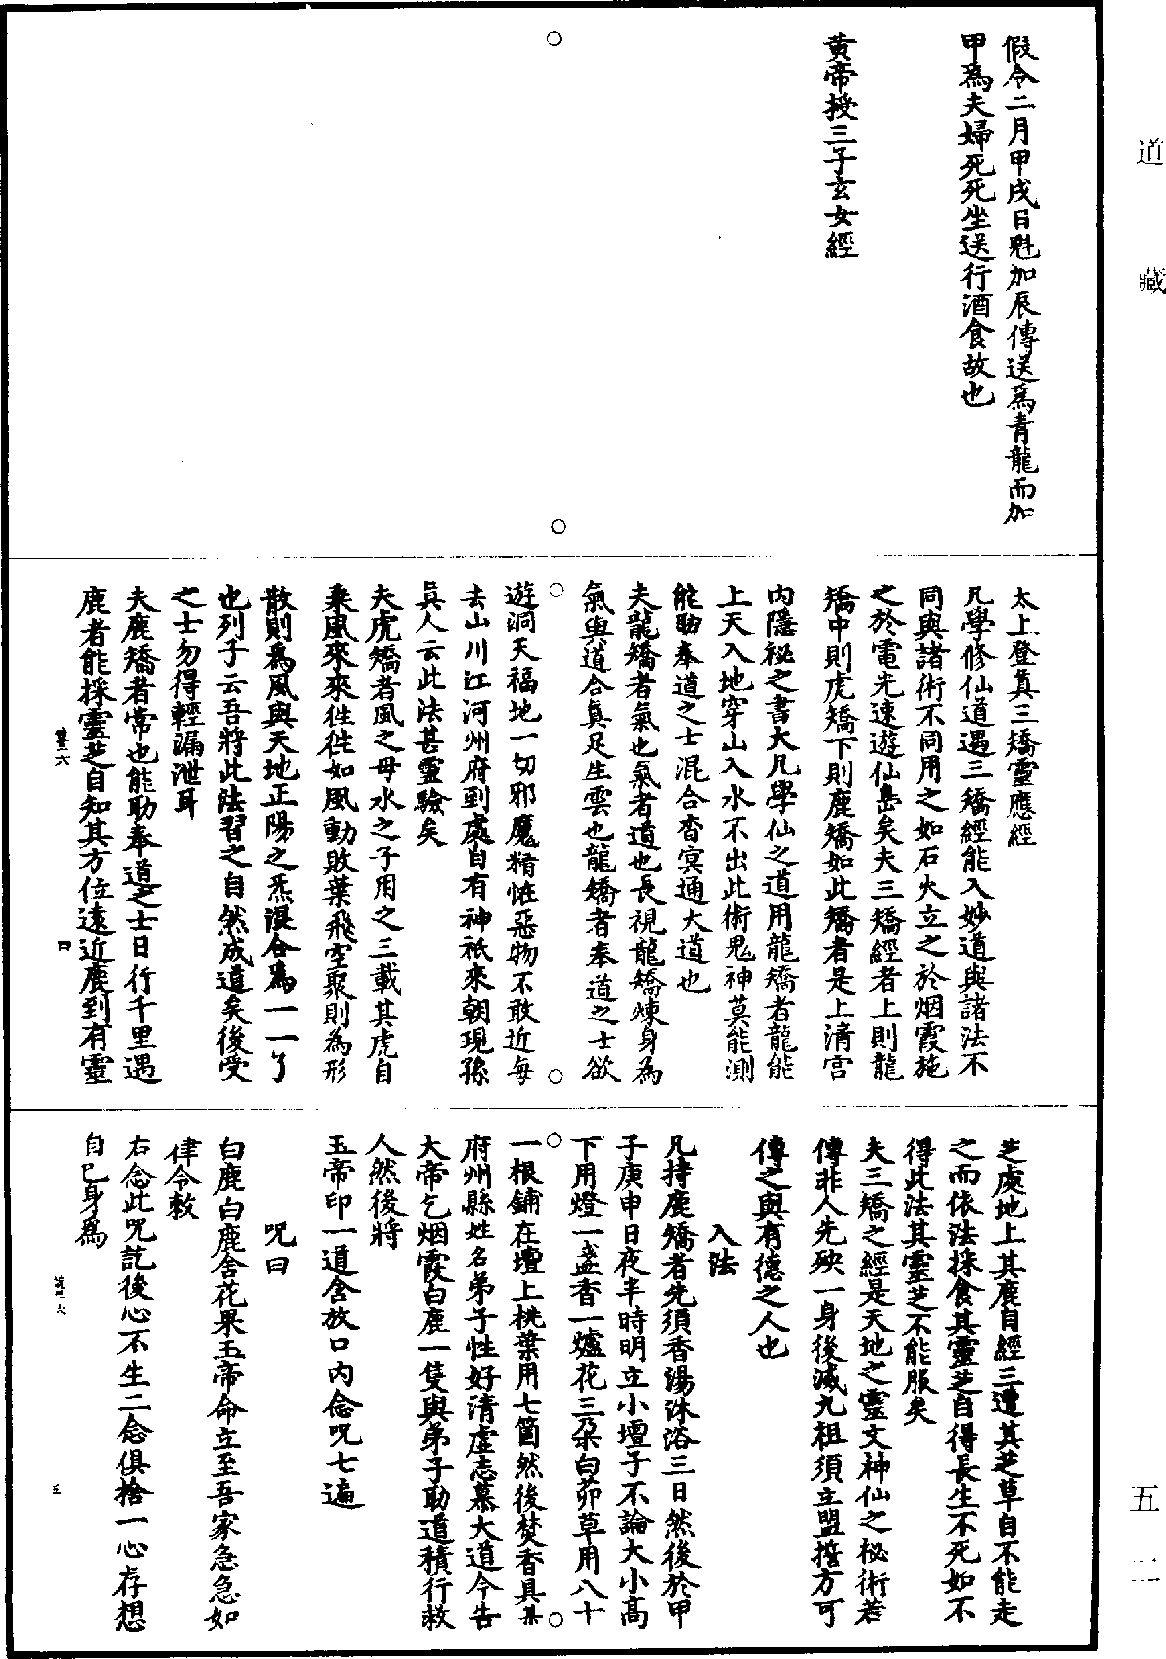 道藏
五二
假令二月甲戌日魁加辰傳送爲青龍而加
甲爲夫婦死死坐送行酒食故也
黃帝授三子玄女經
太上登真三矯靈應經
凡學修仙道遇三矯經能入妙道與諸法不
同與諸術不同用之如石火立之於烟霞施
之於電光速遊仙島矣夫三矯經者上則龍
矯中則虎矯下則鹿矯如此矯者是上清宮
內隱祕之書大凡學仙之道用龍矯者龍能
上天入地穿山入水不出此術鬼神莫能測
能助奉道之士混合杳冥通大道也
夫龍矯者氣也氣者道也長視龍矯煉身為
氣與道合真足生雲也龍矯者奉道之士欲
遊洞天福地一切邪魔精恠惡物不敢近每
去山川江河州府到處自有神祇來朝現孫
真人云此法甚靈驗矣
夫虎矯者風之母水之子用之三載其虎自
乘風來來往往如風動敗葉飛空聚則為形
散則為風與天地正陽之炁混合為一一了
也列子云吾將此法習之自然成道矣後受
之士勿得輕漏泄耳
夫鹿矯者常也能助奉道之士日行千里遇
鹿者能採靈芝自知其方位遠近鹿到有靈
六
四
芝處地上其鹿自經三遭其芝草自不能走
之而依法採食其靈芝自得長生不死如不
得此法其靈芝不能服矣
夫三矯之經是天地之靈文神仙之秘術若
傳非人先殃一身後滅九祖須立盟誓方可
傳之與有德之人也
入法
凡持鹿矯者先須香湯沐浴三日然後於甲
子庚申日夜半時明立小壇子不論大小高
下用燈一盞香一爐花三朵白茆草用八十
一根鋪在壇上桃葉用七箇然後焚香具某
府州縣姓名弟子性好清虛志慕大道今告
大帝乞烟霞白鹿一隻與弟子助道積行救
人然後將
玉帝印一道含放口內念呪七遍
呪曰
白鹿白鹿含花果玉帝命立至吾家急急如
律令敕
右念此呪訖後心不生二念俱捨一心存想
自己身為
五